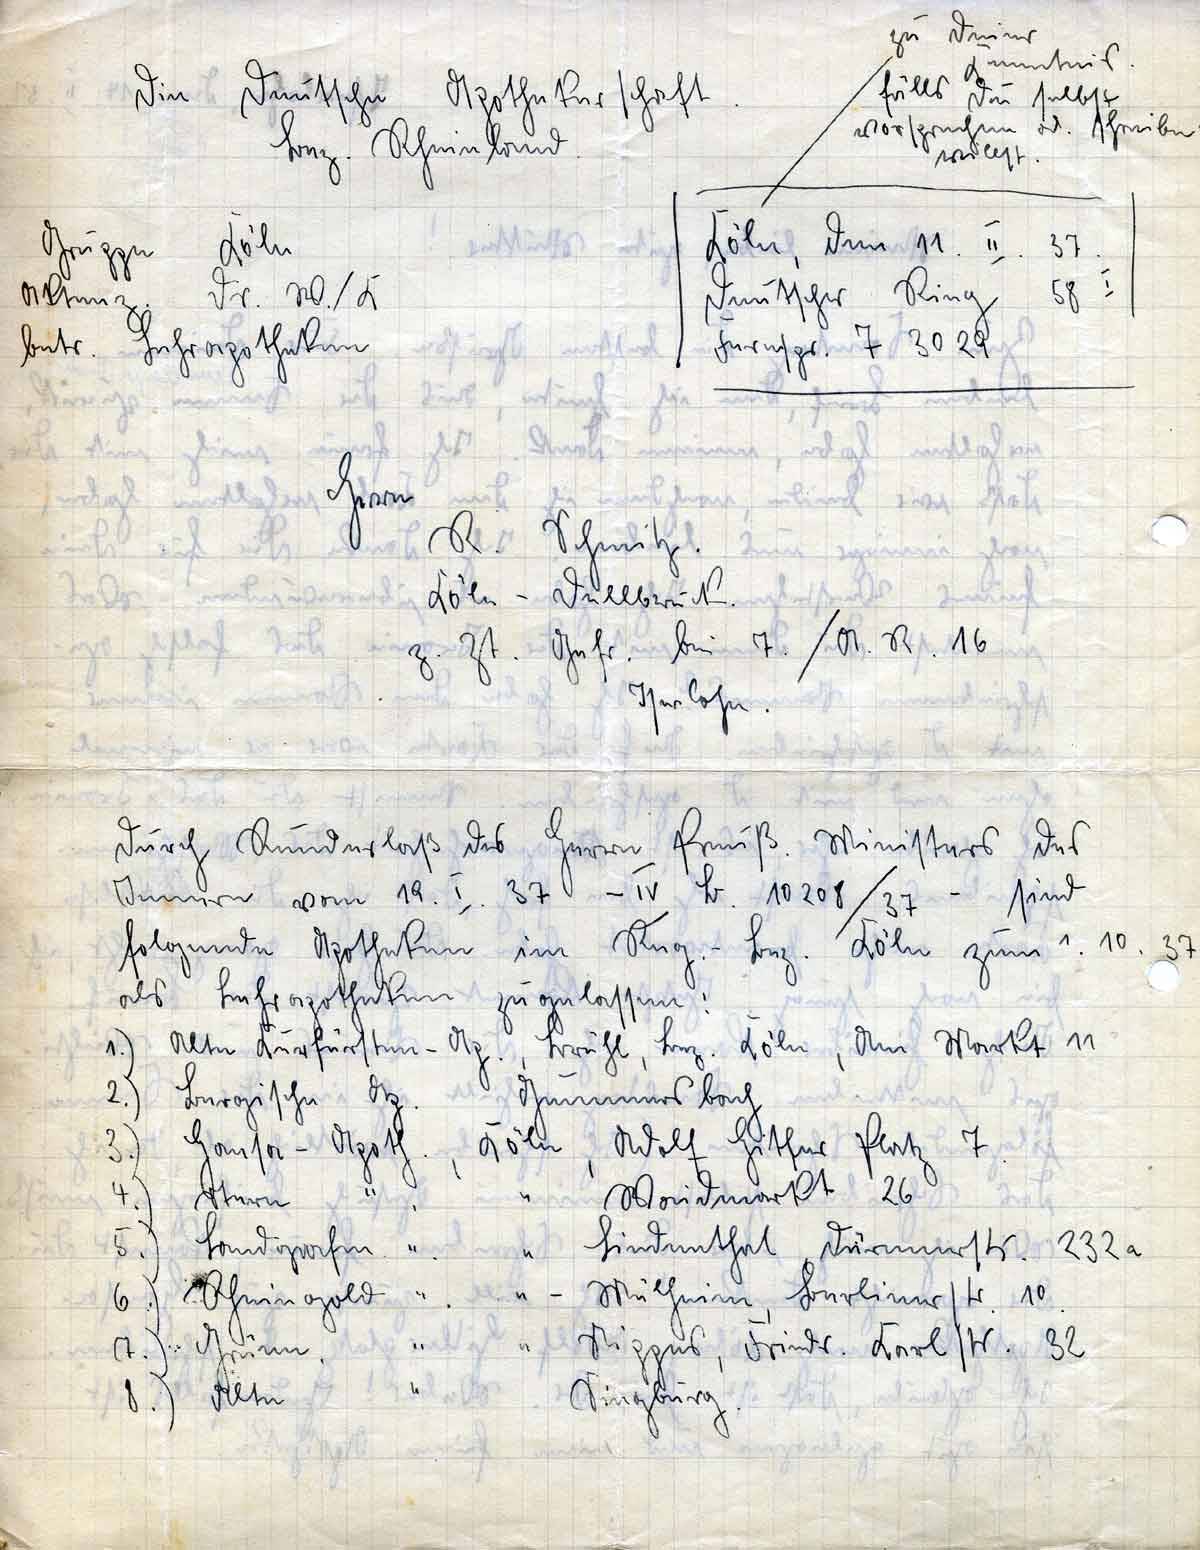 zu Deiner
Kenntnis.
falls Du selbst
vorsprechen od. schreiben
willst.
Die Deutsche Apothekerschaft.
Bez. Rheinland.
Gruppe Köln
Aktenz. Dr. W./K
betr. Lehrapotheken
Köln, den 11. II. 37.
Deutscher Ring 58 I
Fernspr. 7 30 29
Herrn
R. Schmitz.
Köln - Dellbrück.
z. Zt. Gefr. bei 7./A. R. 16
Iserlohn.
Durch Runderlaß des Herrn Preuß. Ministers des
Innern vom 19. I. 37 - IV B. 10208/37 - sind
folgende Apotheken im Reg.- Bez. Köln zum 1. 10. 37
als Lehrapotheken zugelassen:
1.) Alte Kurfürsten - Ap., Brühl, Bez. Köln, Am Markt 11
2.) Bergische Ap. Gummersbach
3.) Hansa - Apoth., Köln, Adolf Hitler Platz 7.
4.) Stern " . " Waidmarkt 26
5.) Landgrafen " . " Lindenthal, Dürenerstr. 232a
6.) Rheingold " . " - Mülheim, Berlinerstr. 10.
7.) Grüne. " " Nippes, Friedr. Karlstr. 32
8.) Alte " Siegburg.